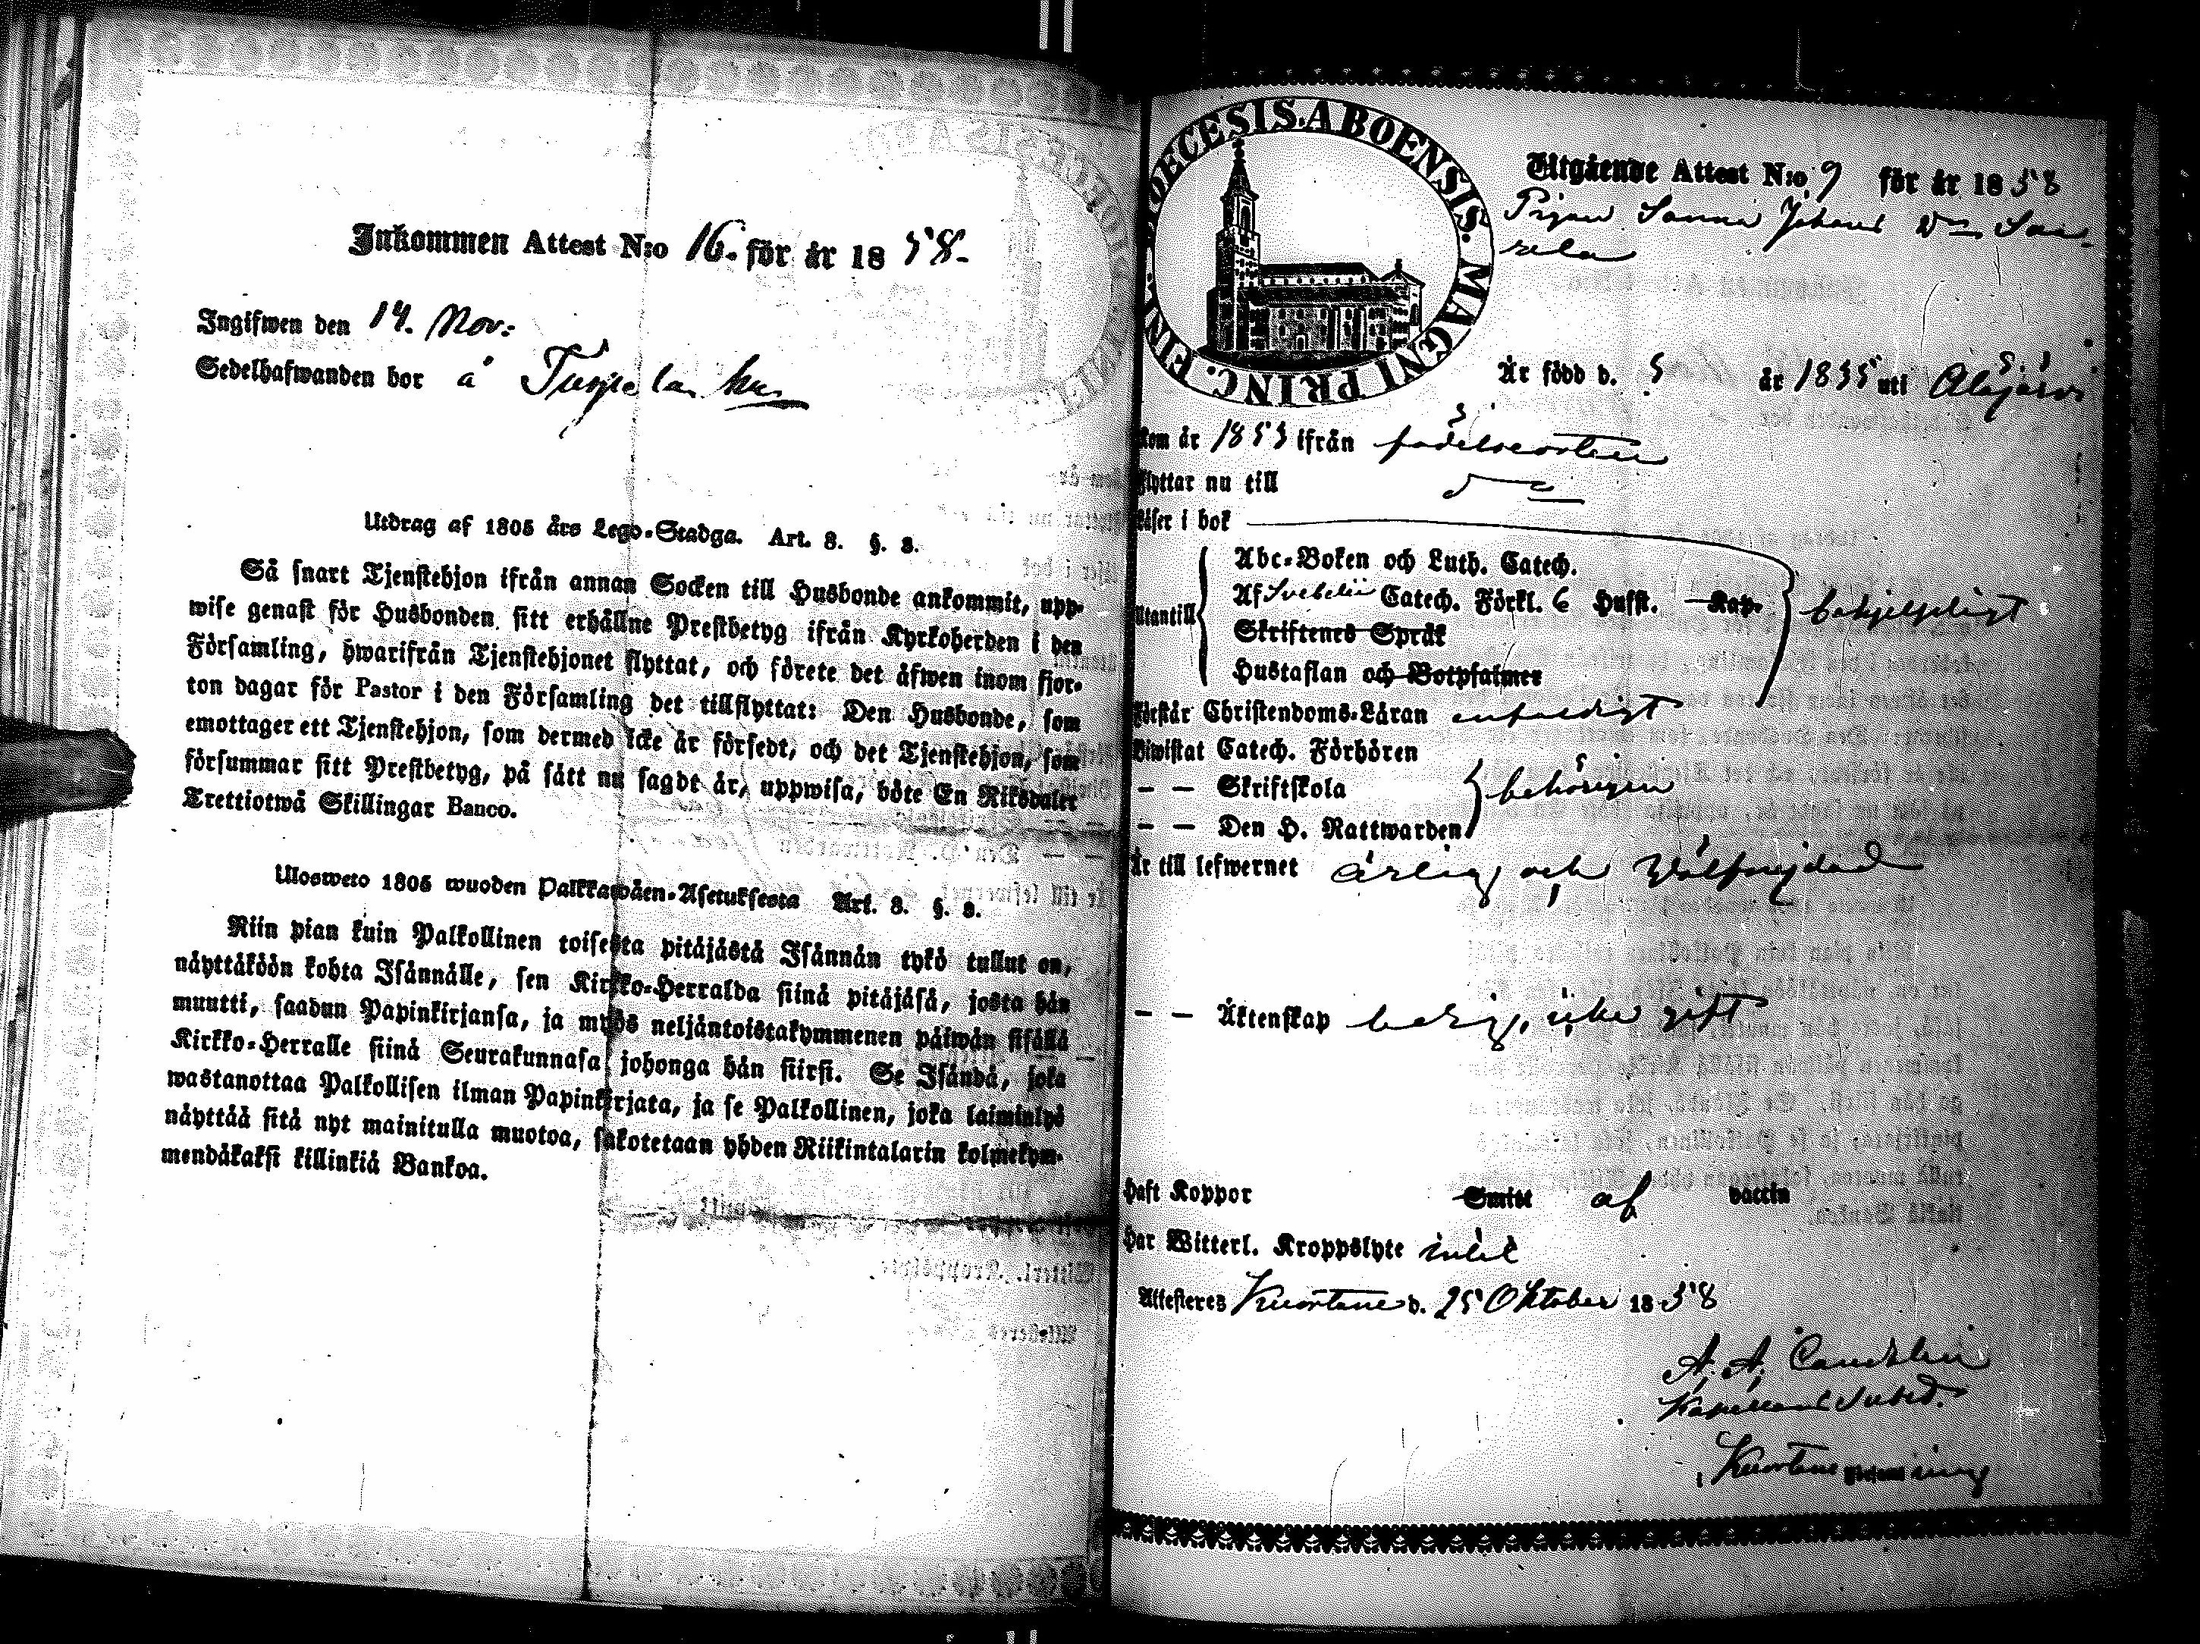 Inkommen Attest N:o 16. för år 1858.
Ingifwen den 14. Nov:
Sedelhafwanden bor å
Utdrag af 1805 års Lego-Stadga. Art. 8. §. 3.
Så snart Tjenstehjon ifrån annan Socken till Husbonde ankommit, upp-
wise genast för Husbonden sitt erhållne Prestbetyg ifrån Kyrkoherden i den
Församling, hwarifrån Tjenstehjonet flyttat, och förete det äfwen inom fjor-
ton dagar för Pastor i den Församling det tillflyttat: Den Husbonde, som
emottager ett Tjenstehjon, som dermed icke är försedt, och det Tjenstehjon, som
försummar sitt Prestbetyg, på sätt nu sagdt är, uppwisa, böte En Riksdaler
Trettiotwå Skillingar Banco.
Ulosweto 1805 wuoden Palkkawäen-Asetuksesta Art. 8. §. 3.
Niin pian kuin Palkollinen toisesta pitäjästä Isännän tykö tullut on,
näyttäköön kohta Isännälle, sen Kirkko-Herralda siinä pitäjäsä, josta hän
muutti, saadun Papinkirjansa, ja myös neljäntoistakymmenen päiwän sisällä
Kirkko-Herralle siinä Seurakunnasa johonga hän siirsi. Se Isändä, joka
wastanottaa Palkollisen ilman Papinkirjata, ja se Palkollinen, joka laiminlyö
näyttää sitä nyt mainitulla muotoa, sakotetaan yhden Riikintalarin kolmekym-
mendäkaksi killinkiä Bankoa.
DIOECESIS.ABOENSIS. MAGNI PRINC. FINL.
Utgående Attest N:o 9 för år 1858
Pigan Sanna Johans
Är född d. 5 år 1835 uti Alajärvi
kom år 1853 ifrån födelseorten
flyttar nu till
läser i bok
Utantill
Abc-Boken och Luth. Catech.
Af Svebelii Catech. Förkl. 6 Hufst. Kap.
Skriftenes Språk
Hustaflan och Botpsalmer
behjelpligt
Förstår Christendoms-Läran enfaldigt
Biwistat Catech. Förhören
— — Skriftskola
— — Den H. Nattwarden
behörigen
Är till lefwernet ärlig och wälfrejdad
— — Äktenskap ledig, icke gift
Haft Koppor Smitt af vaccin
Har Witterl. Kroppslyte intet
Attesteres Kuortane d. 25 Oktober 1858
A. A.
Kuortane